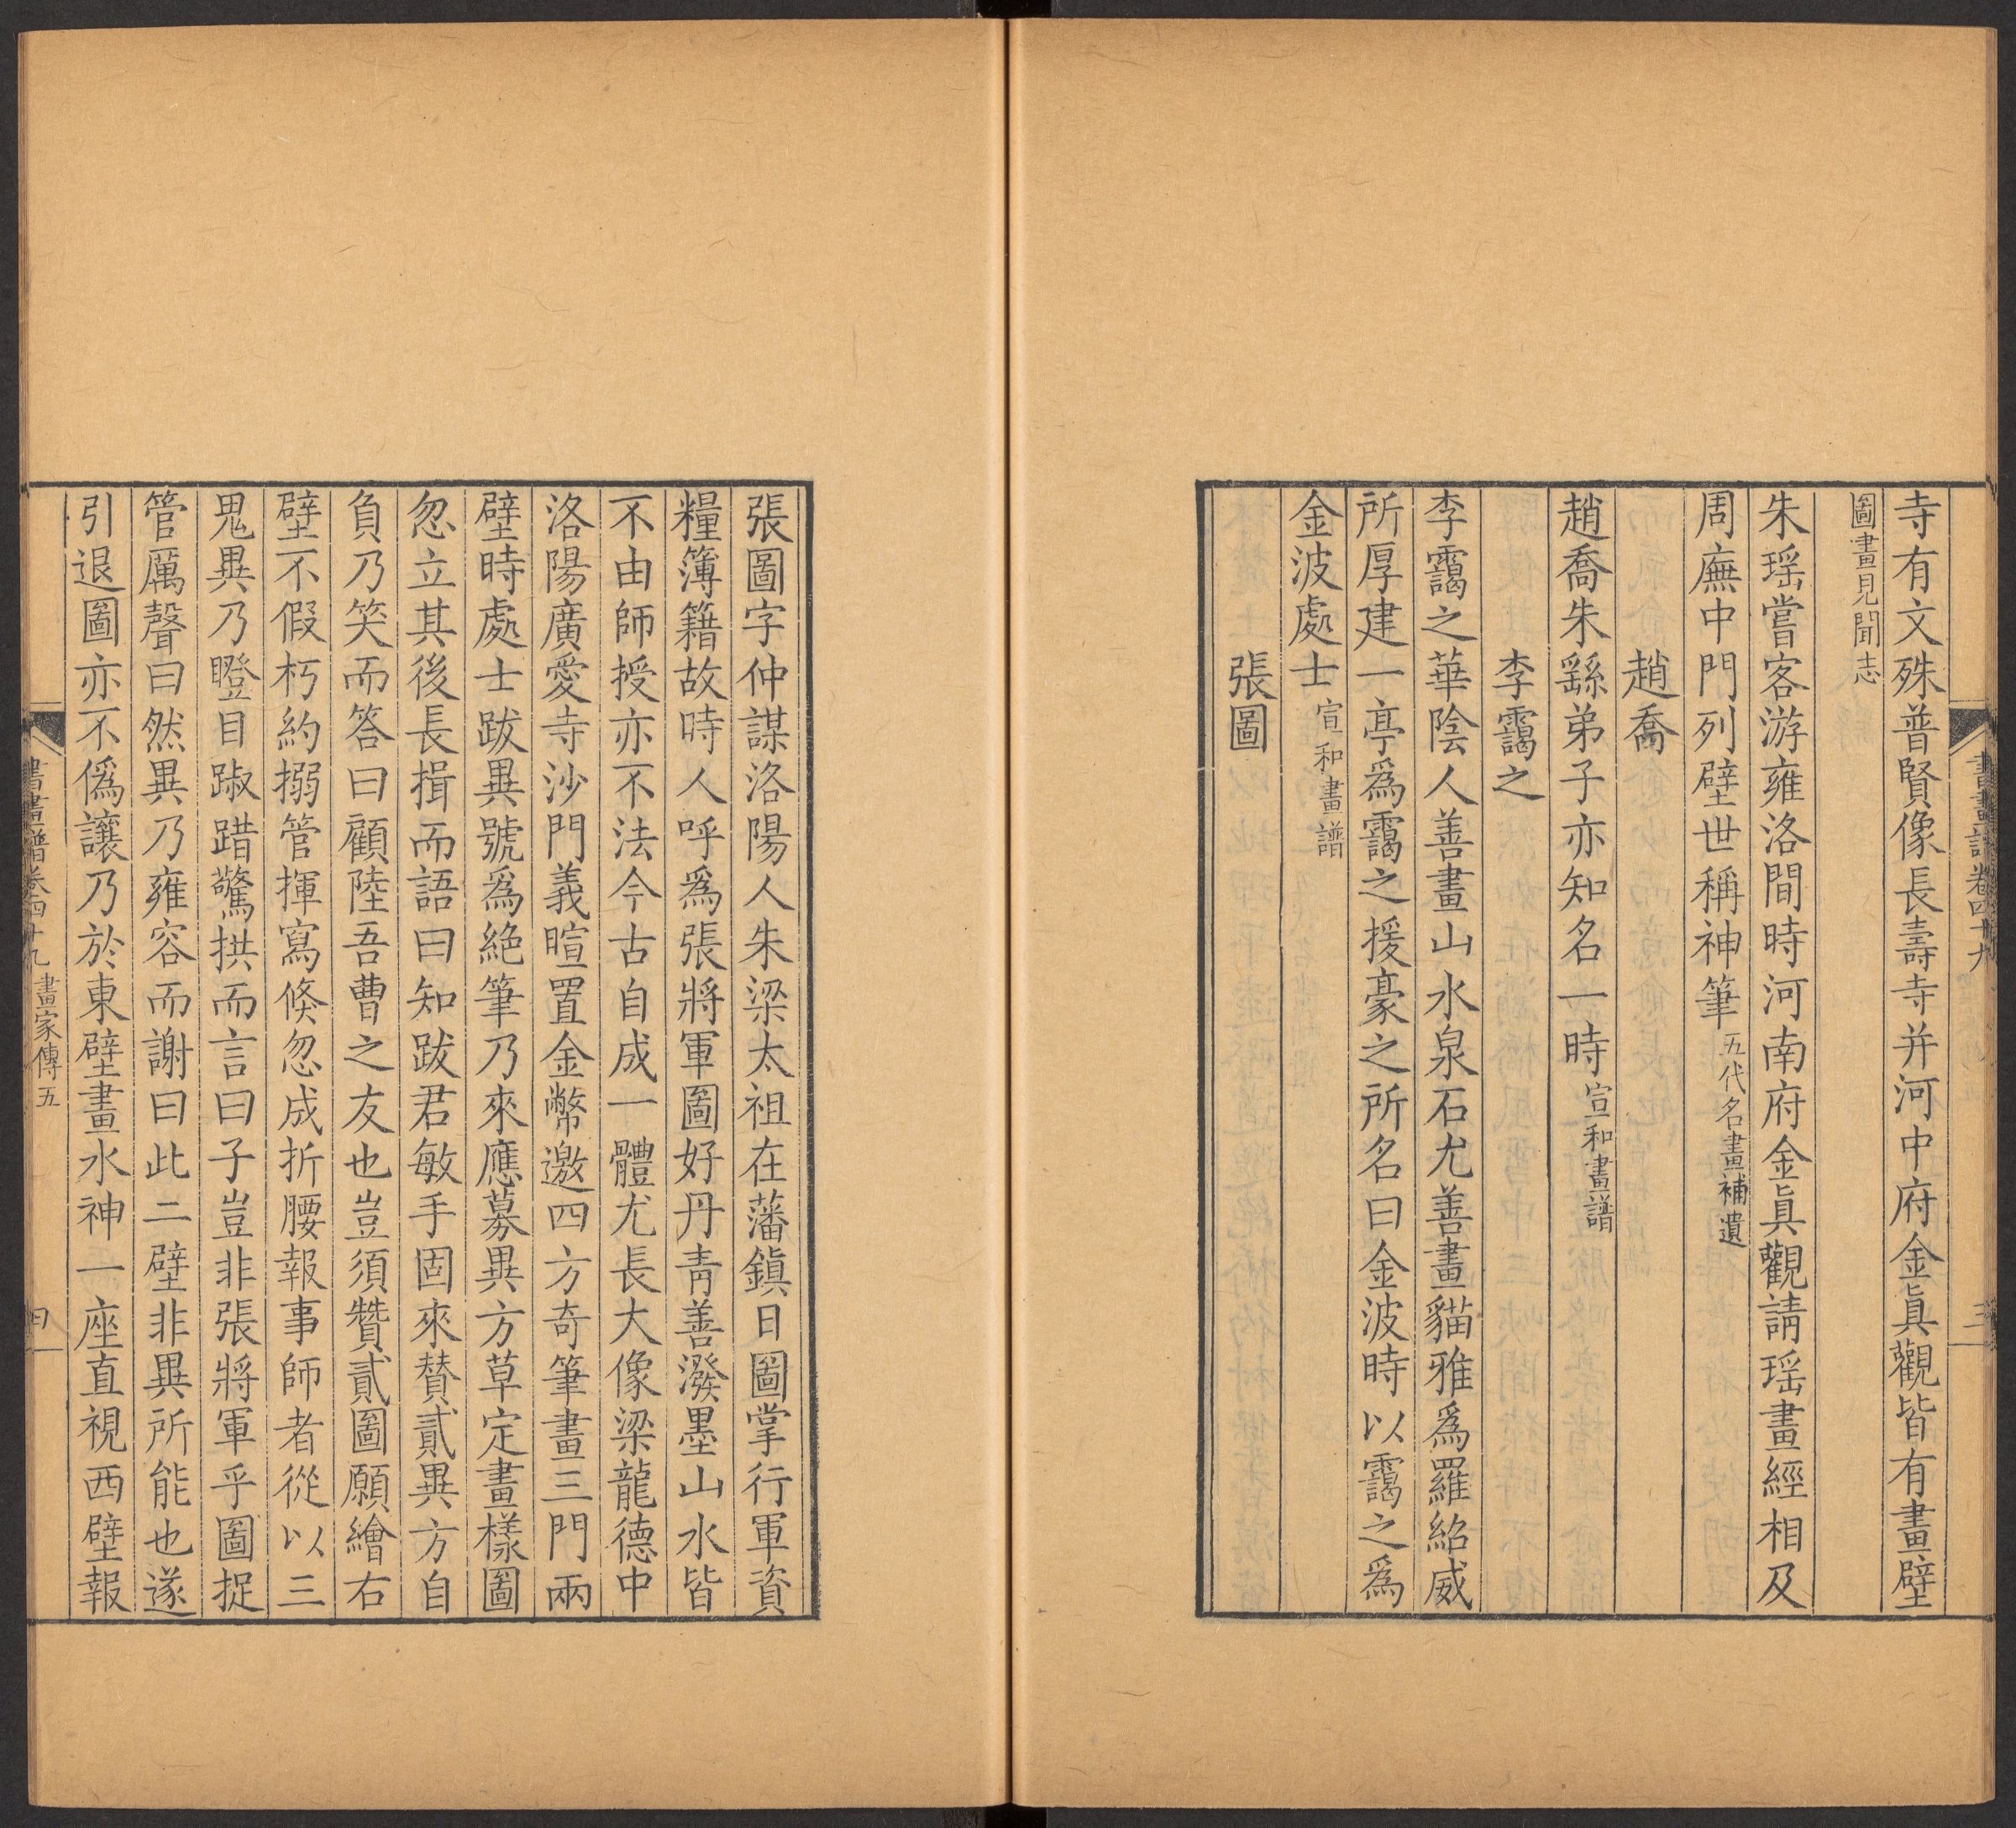 寺有文殊普賢像長壽寺并河中府金眞觀皆有畫壁
圖畫見聞志
朱瑶嘗客游雍洛間時河南府金眞觀請瑶畫經相及
周廡中門列壁世稱神筆五代名畫補遺
趙喬
趙喬朱繇弟子亦知名一時宣和畫譜
李靄之
李靄之華陰人善畫山水泉石尤善畫貓雅爲羅紹威
所厚建一亭爲靄之援豪之所名曰金波時以靄之爲
金波處士宣和畫譜
張圖
張圖字仲謀洛陽人朱梁太祖在藩鎭日圖掌行軍資
糧簿籍故時人呼爲張將軍圖好丹青善潑墨山水皆
不由師授亦不法今古自成一體尤長大像梁龍德中
洛陽廣愛寺沙門義暄置金幣邀四方奇筆畫三門兩
壁時處士跋異號爲絶筆乃來應募異方草定畫樣圖
忽立其後長揖而語曰知跋君敏手固來贊貳異方自
負乃笑而答曰顧陸吾曹之友也豈須贊貳圖願繪右
壁不假朽約搦管揮寫倏忽成折腰報事師者從以三
鬼異乃瞪目踧踖驚拱而言曰子豈非張將軍乎圖捉
管厲聲曰然異乃雍容而謝曰此二壁非異所能也遂
引退圖亦不僞讓乃於東壁畫水神一座直視西壁報
書畫譜卷四十九 畫家傳五